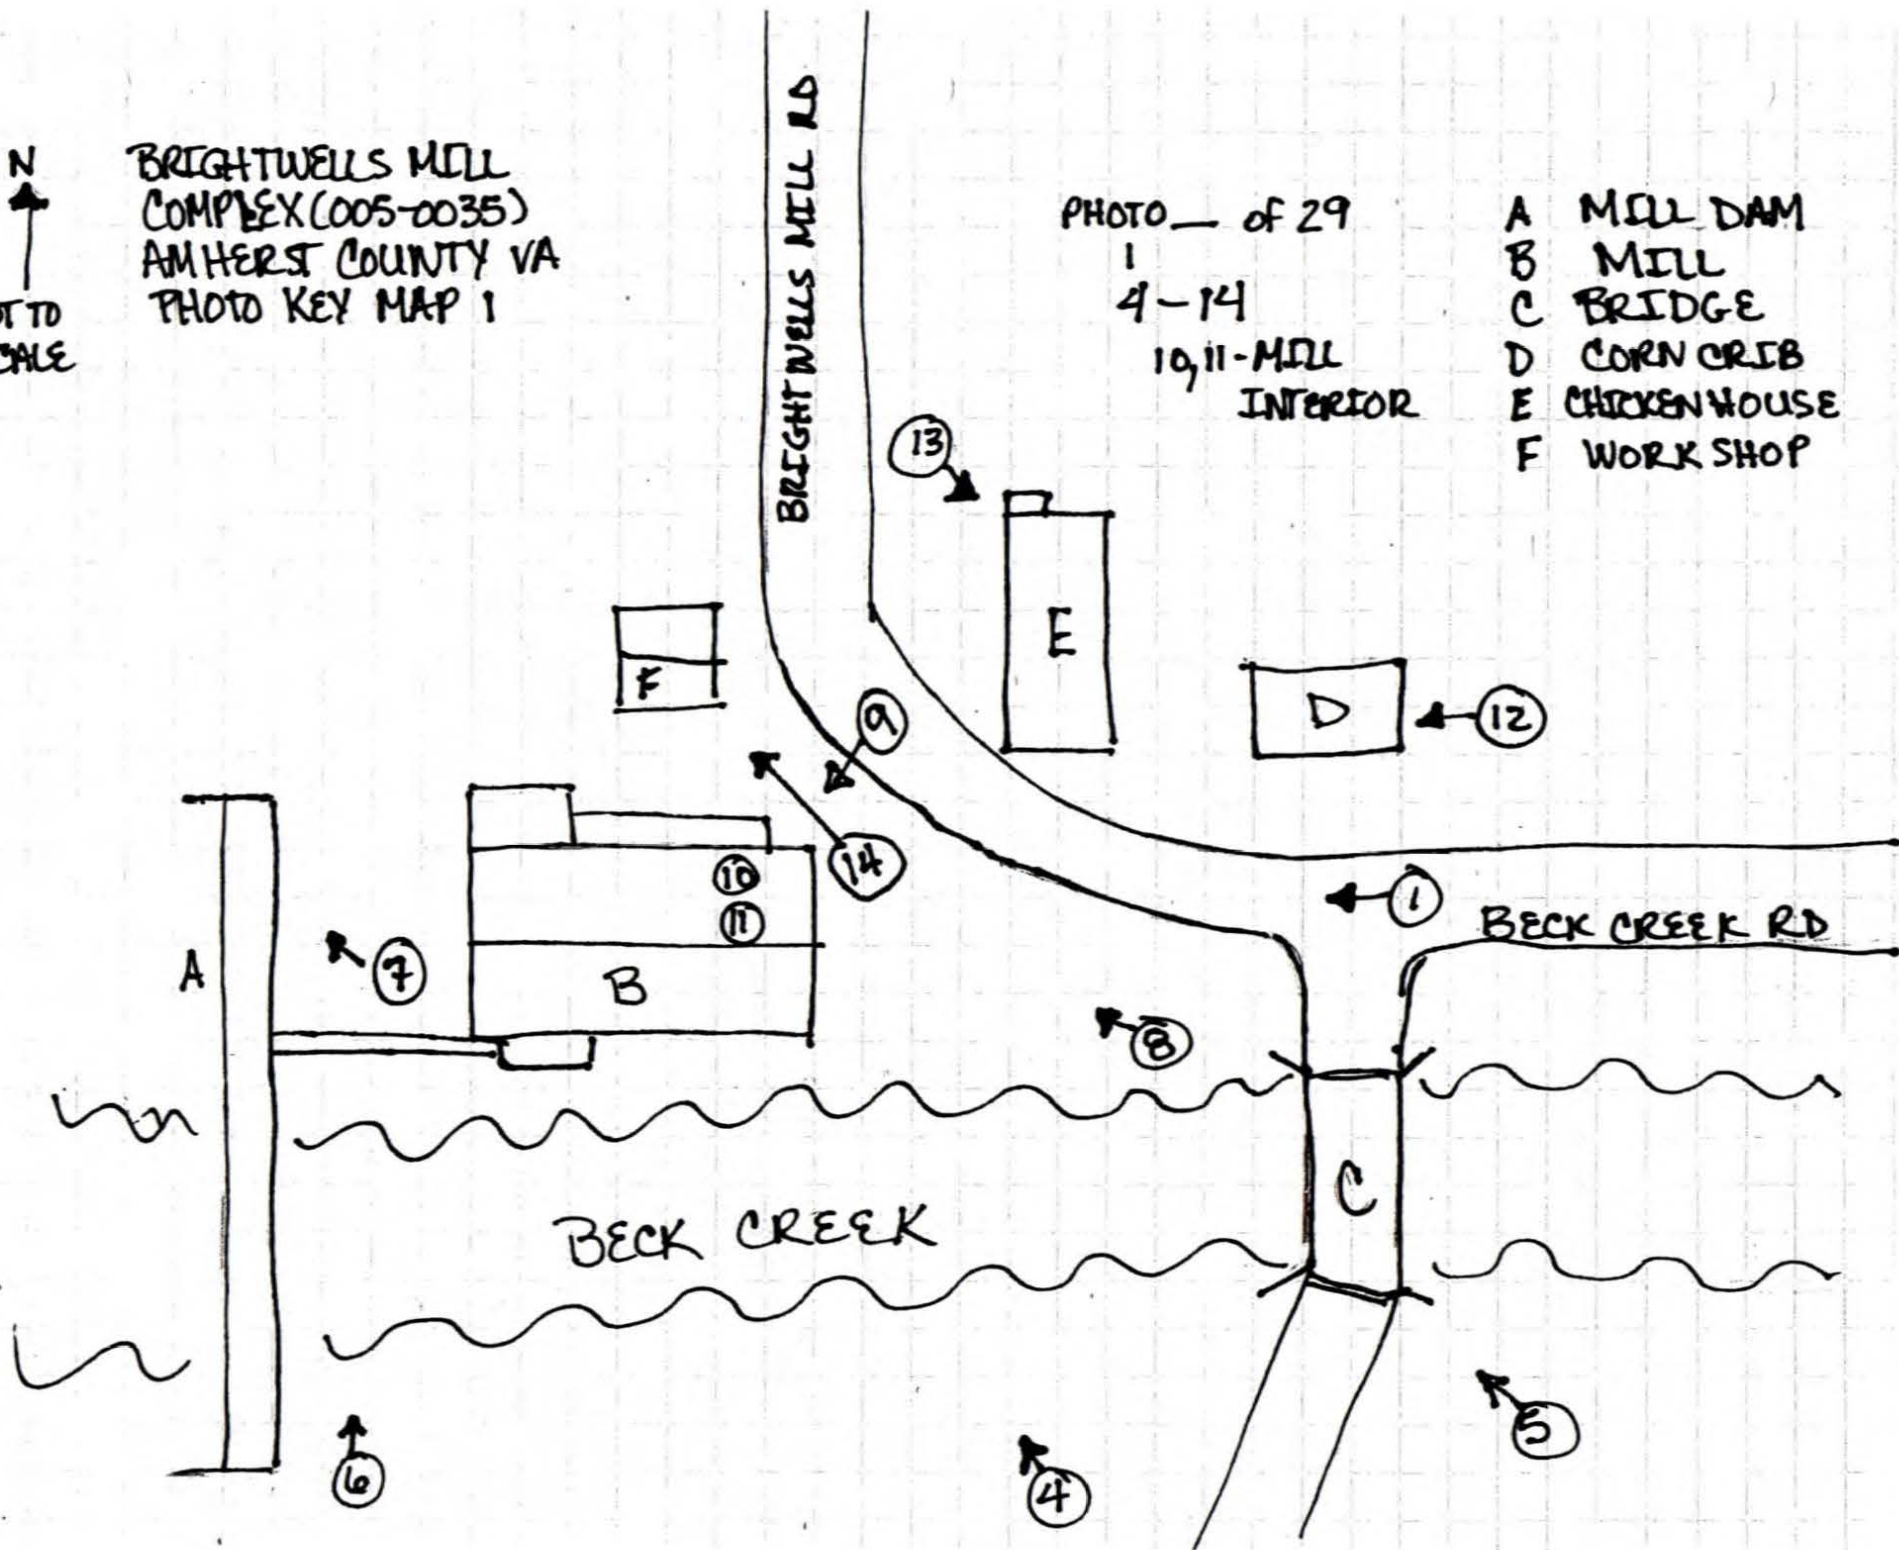 N
BRIGHTWELLS MILL
COMPLEX (005-0035)
AMHERST COUNTY VA
PHOTO KEY MAP 1
TO
BRIGHTWELLS MILL RD
PHOTO __ of 29
1
4-14
10,11-MILL
INTERIOR
A MILL DAM
B MILL
C BRIDGE
D CORN CRIB
E CHICKEN HOUSE
F WORK SHOP
13
E
F
9
D
12
14
10
11
1
BECK CREEK RD
A
7
B
8
C
BECK CREEK
5
6
4